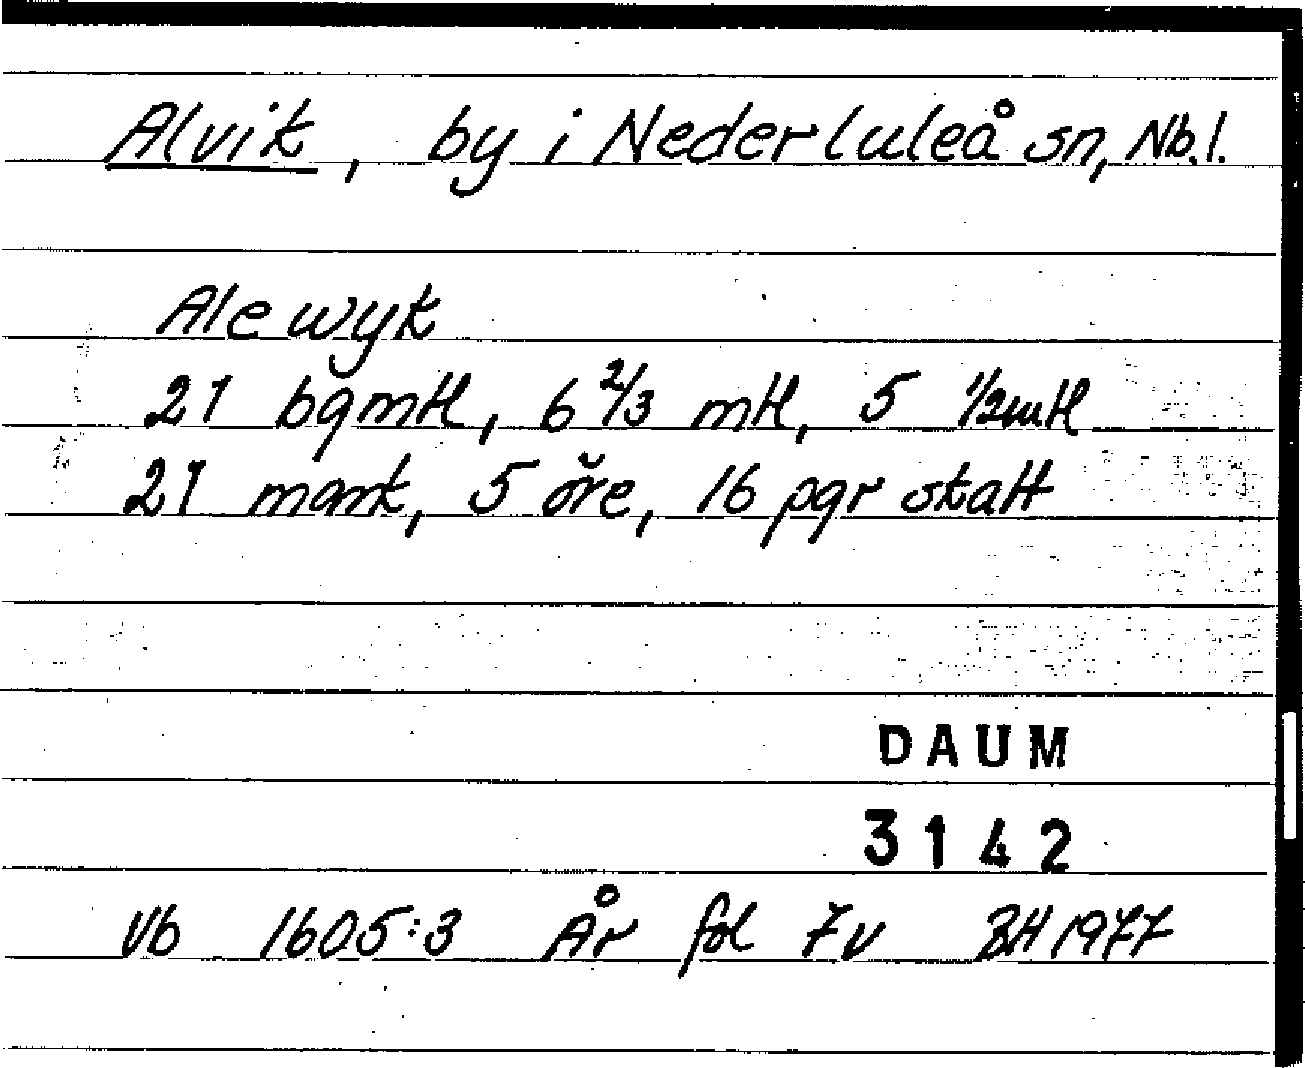 Alvik, by i Nederluleå sn, Nb.l.
Alewyk
21 bgmtl, 6 2/3 mtl, 5 1/2mtl
21 mark, 5 öre, 16 pgr skatt
DAUM
3142
Vb 1605:3 År fol 7v BH 1977